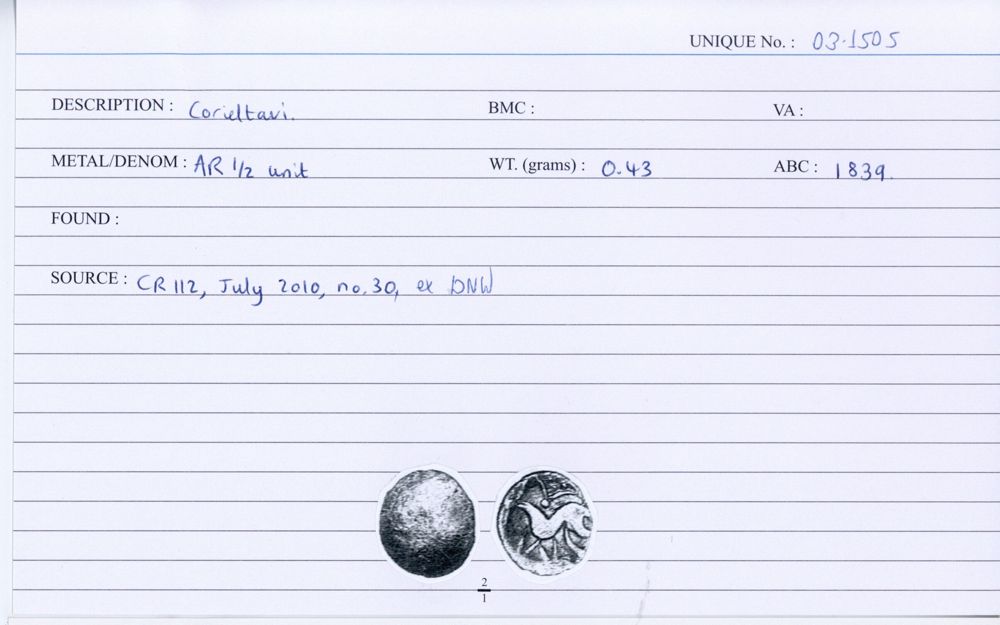 UNIQUE No. : 03-1505
DESCRIPTION : Corieltavi. BMC : VA :
METAL/DENOM : AR 1/2 unit WT. (grams) : 0.43 ABC : 1839
FOUND :
SOURCE : CR 112, July 2010, no.30, ex DNW
2
1